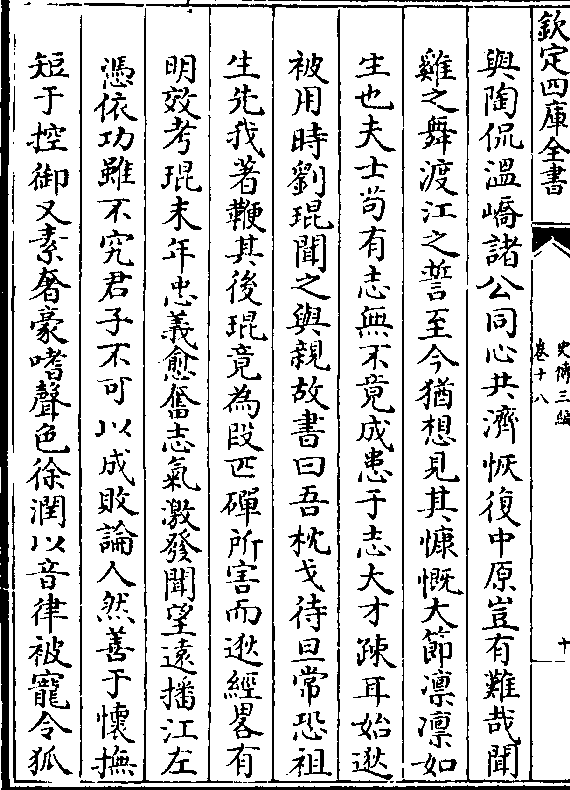 欽定四庫全書
史傳三編
卷十八
十
與陶侃溫嶠諸公同心共濟恢復中原豈有難哉聞
雞之舞渡江之誓至今猶想見其慷慨大節凛凛如
生也夫士苟有志無不竟成患于志大才疎耳始逖
被用時劉琨聞之與親故書曰吾枕戈待旦常恐祖
生先我著鞭其後琨竟為段匹磾所害而逖經畧有
明效考琨末年忠義愈奮志氣激發聞望遠播江左
憑依功雖不究君子不可以成敗論人然善于懷撫
短于控御又素奢豪嗜聲色徐潤以音律被寵令狐